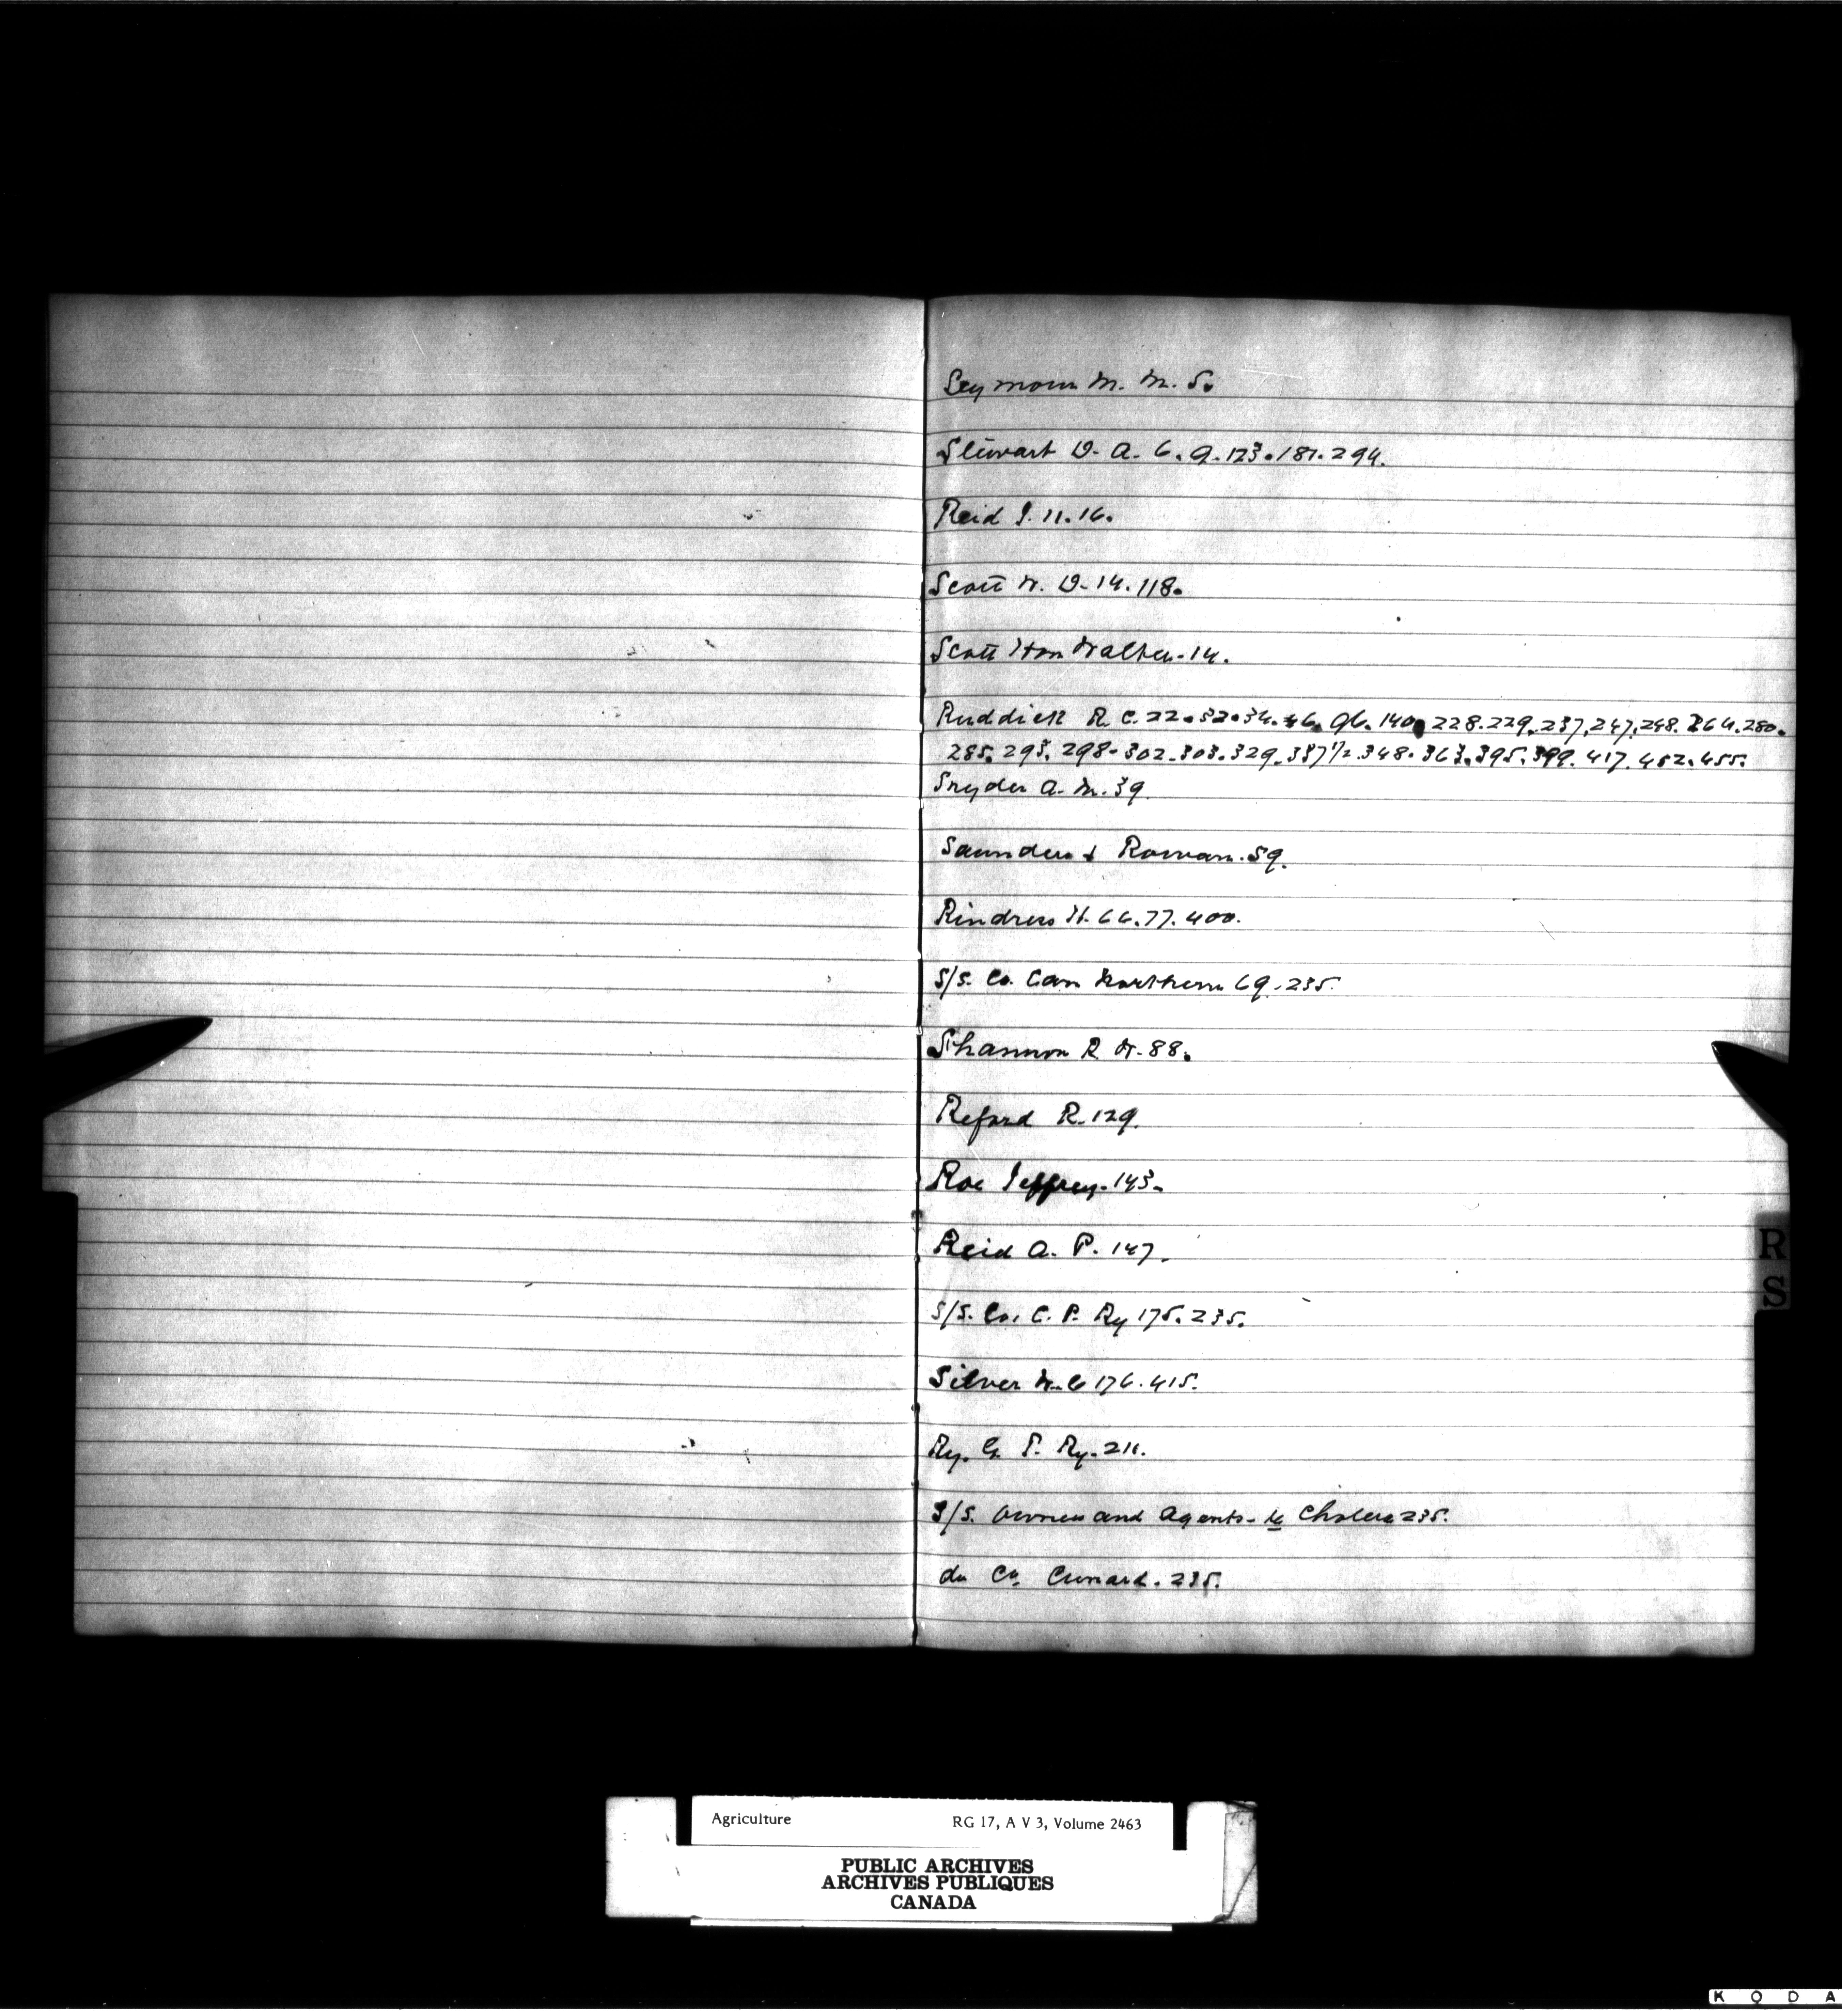 Seymour M. M. 5.
Stewart D. A. 6. 9. 123. 181. 294.
Reid J. 11. 16.
Scott W. D. 14. 118.
Scott Hon Walter. 14.
Ruddick R. C. 22. 32. 34. 46. 96. 140. 228. 229. 237. 247. 248. 264. 280.
285. 293. 298. 302. 303. 329. 337 1/2. 348. 363. 395. 399. 417. 452. 455.
Snyder A. M. 39.
Saunders & Rowan. 59.
Rindress H. 66. 77. 400.
S/S. Co. Can Northern 69. 235.
Shannon R W. 88.
Reford R. 129.
Roe Jeffrey. 143.
Reid A. P. 147.
S/S. Co. C. P. Ry 175. 235.
Silver W. C 176. 415.
Ry. G. P. Ry. 211.
S/S. Owners and Agents - re Cholera 235.
do Co. Cunard. 235.
R
S
Agriculture RG 17, A V 3, Volume 2463
PUBLIC ARCHIVES
ARCHIVES PUBLIQUES
CANADA
K O D A